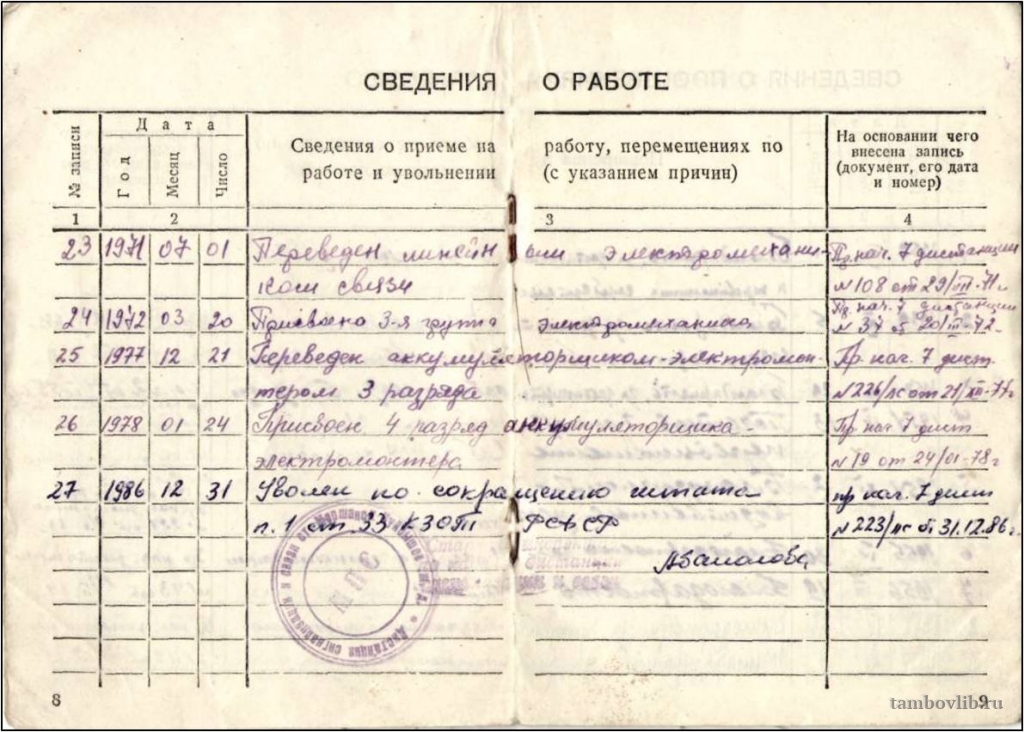 СВЕДЕНИЯ О РАБОТЕ
№ записи
Дата
Год
Месяц
Число
Сведения о приеме на работу, перемещениях по
работе и увольнении (с указанием причин)
На основании чего
внесена запись
(документ, его дата
и номер)
1 2 3 4
23 1971 07 01 Переведен линейным электромехани- Пр. нач. 7 дистанции
ком связи №108 от 29/VII-71г
24 1972 03 20 Присвоена 3-я группа электромеханика Пр. нач. 7 дистанции
№ 37 от 20/III-72.
25 1977 12 21 Переведен аккумуляторщиком-электромон- Пр. нач. 7 дист
тером 3 разряда №226/лс от 21/XII-77г
26 1978 01 24 Присвоен 4 разряд аккумуляторщика Пр нач 7 дист
электромонтера №19 от 24/01-78г
27 1986 12 31 Уволен по сокращению штата пр нач. 7 дист
п. 1 ст. 33 КЗОТ РСФСР №223/лс от 31.12.86г.
Дистанция сигнализации и связи ст.
8
9
tambovlib.ru